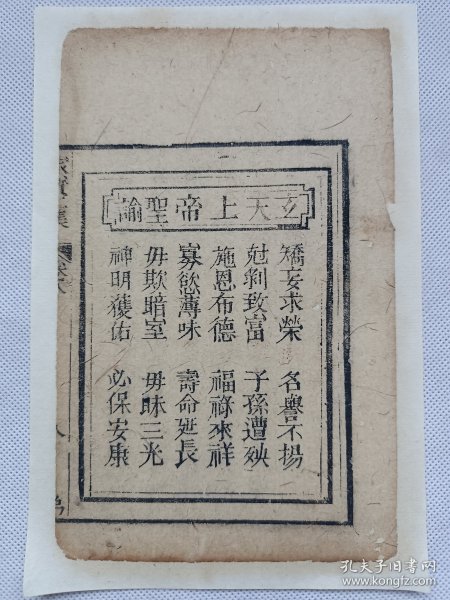 玄天上帝聖諭
矯妄求榮 名譽不揚
尅剝致富 子孫遭殃
施恩布德 福祿來祥
寡慾薄味 壽命延長
毋欺暗室 毋昧三光
神明獲佑 必保安康
孔夫子旧书网
www.kongfz.com